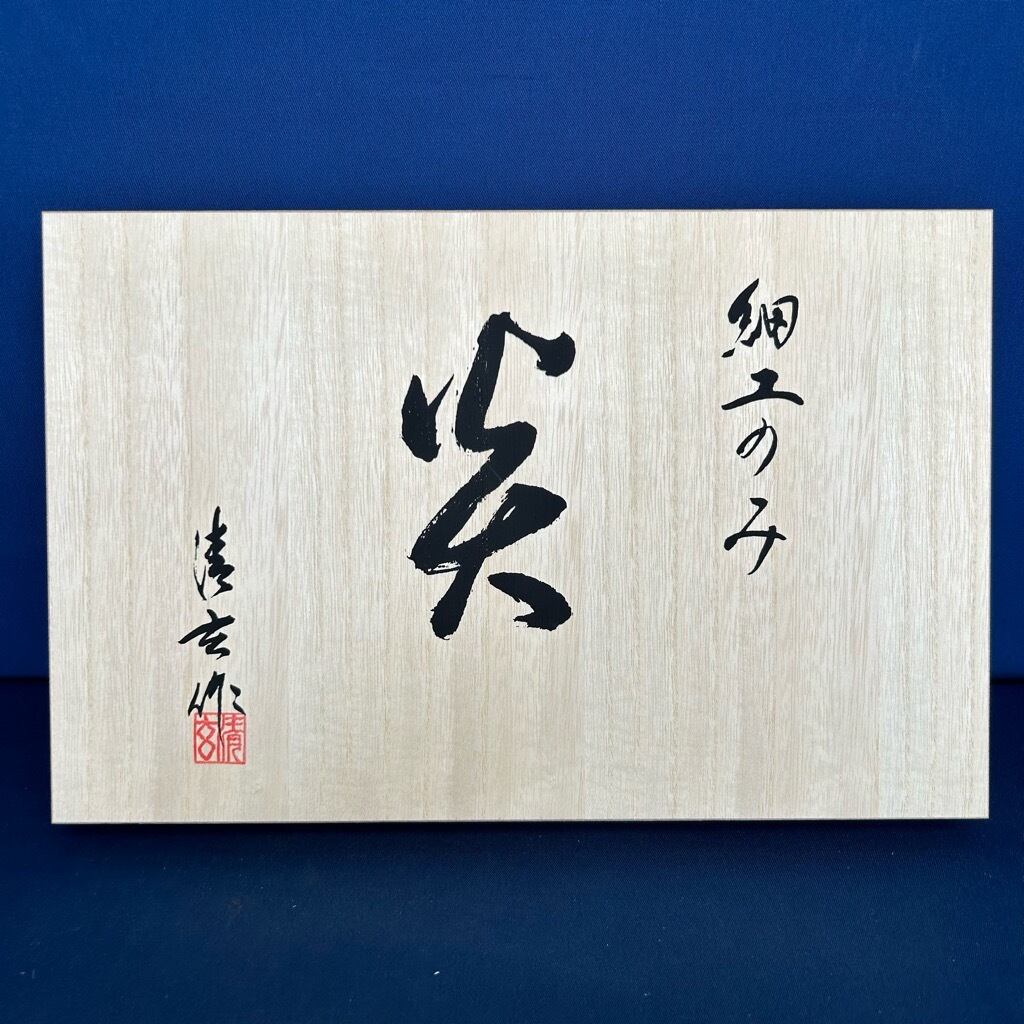 細工のみ
炎
清玄作
清玄